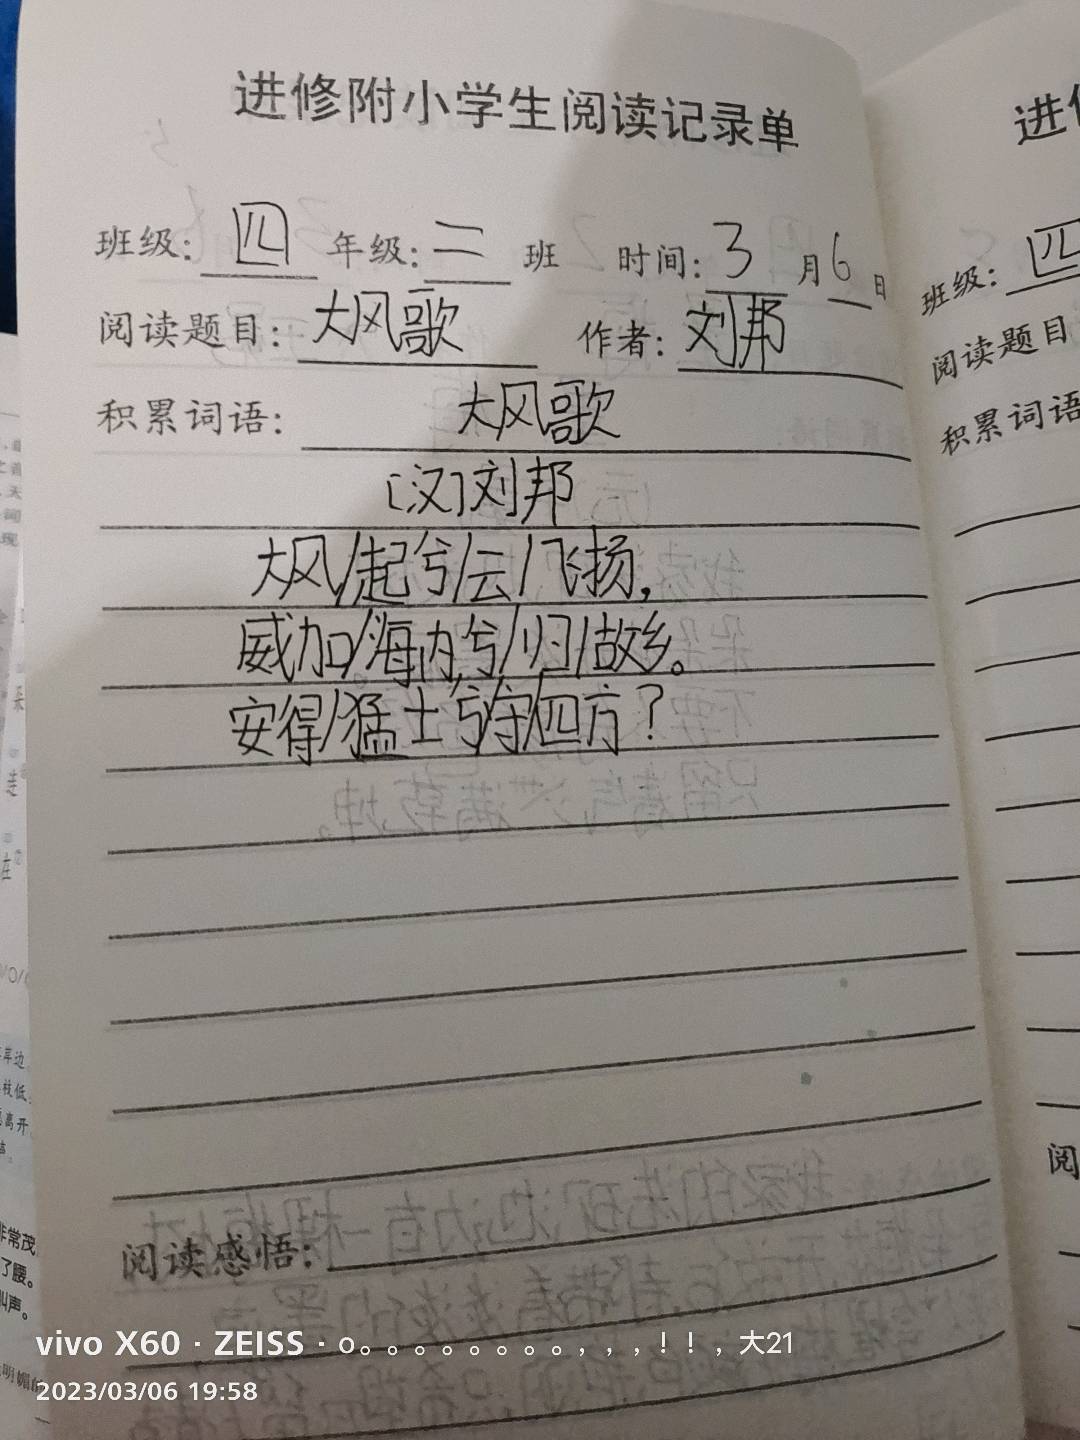 进修附小学生阅读记录单
班级：四 年级：二 班 时间：3 月 6 日
阅读题目：大风歌 作者：刘邦
积累词语： 大风歌
〔汉〕刘邦
大风/起兮/云/飞扬，
威加/海内兮/归/故乡。
安得/猛士兮守/四方？
阅读感悟：
进
班级：四
阅读题目
积累词语
阅
非常茂
了腰。
叫声。
vivo X60 · ZEISS · o。。。。。。。。，，，！！，大21
2023/03/06 19:58